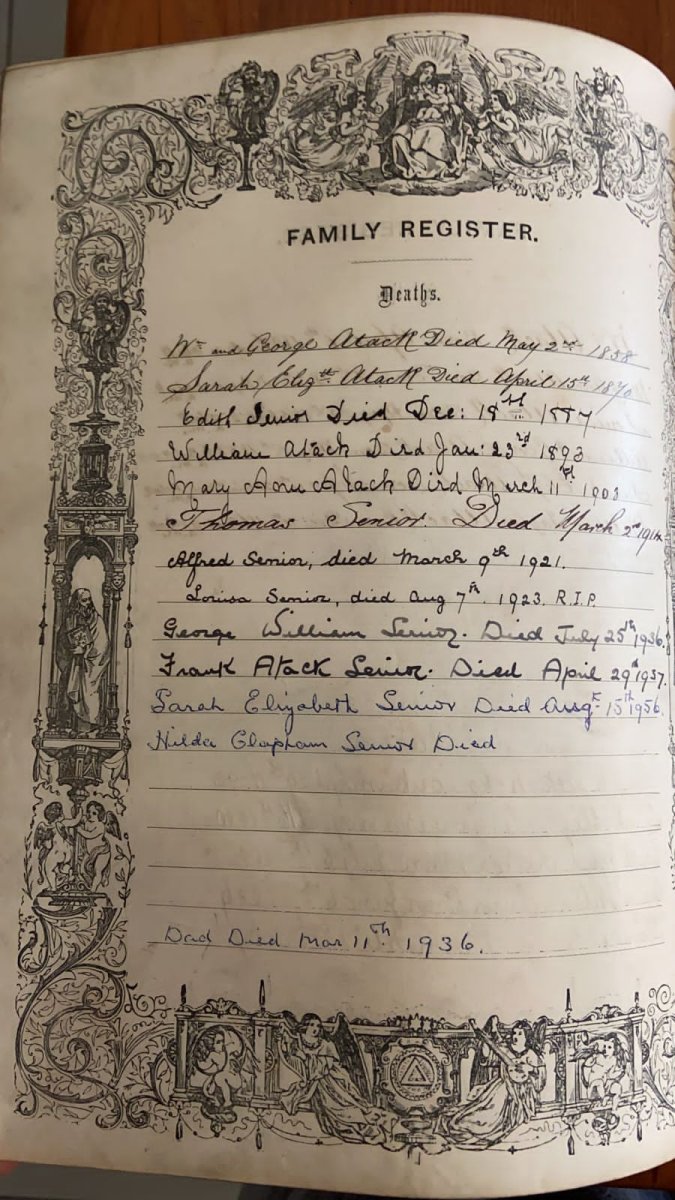 FAMILY REGISTER.
Deaths.
Wm and George Atack Died May 2nd 1858
Sarah Elizth Atack Died April 15th 1870
Edith Senior Died Dec: 18th 1887
William Atack Died Jan: 23rd 1893
Mary Ann Atack Died March 11th 1903
Thomas Senior. Died March 2nd 1914
Alfred Senior, died March 9th 1921.
Louisa Senior, died Aug 7th. 1923. R.I.P.
George William Senior. Died July 25th 1936.
Frank Atack Senior. Died April 29th 1937.
Sarah Elizabeth Senior Died 15th 1956.
Hilda Clapham Senior Died
Dad Died Mar 11th 1936.